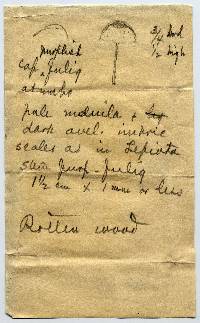 3/4 broad
1/2 high
purplish
Cap, fulig
at umbo
pale
dark avel.
scales as in Lepiota
Stem purp-fulig
1 1/2 cm x 1 mm or less
Rotten wood